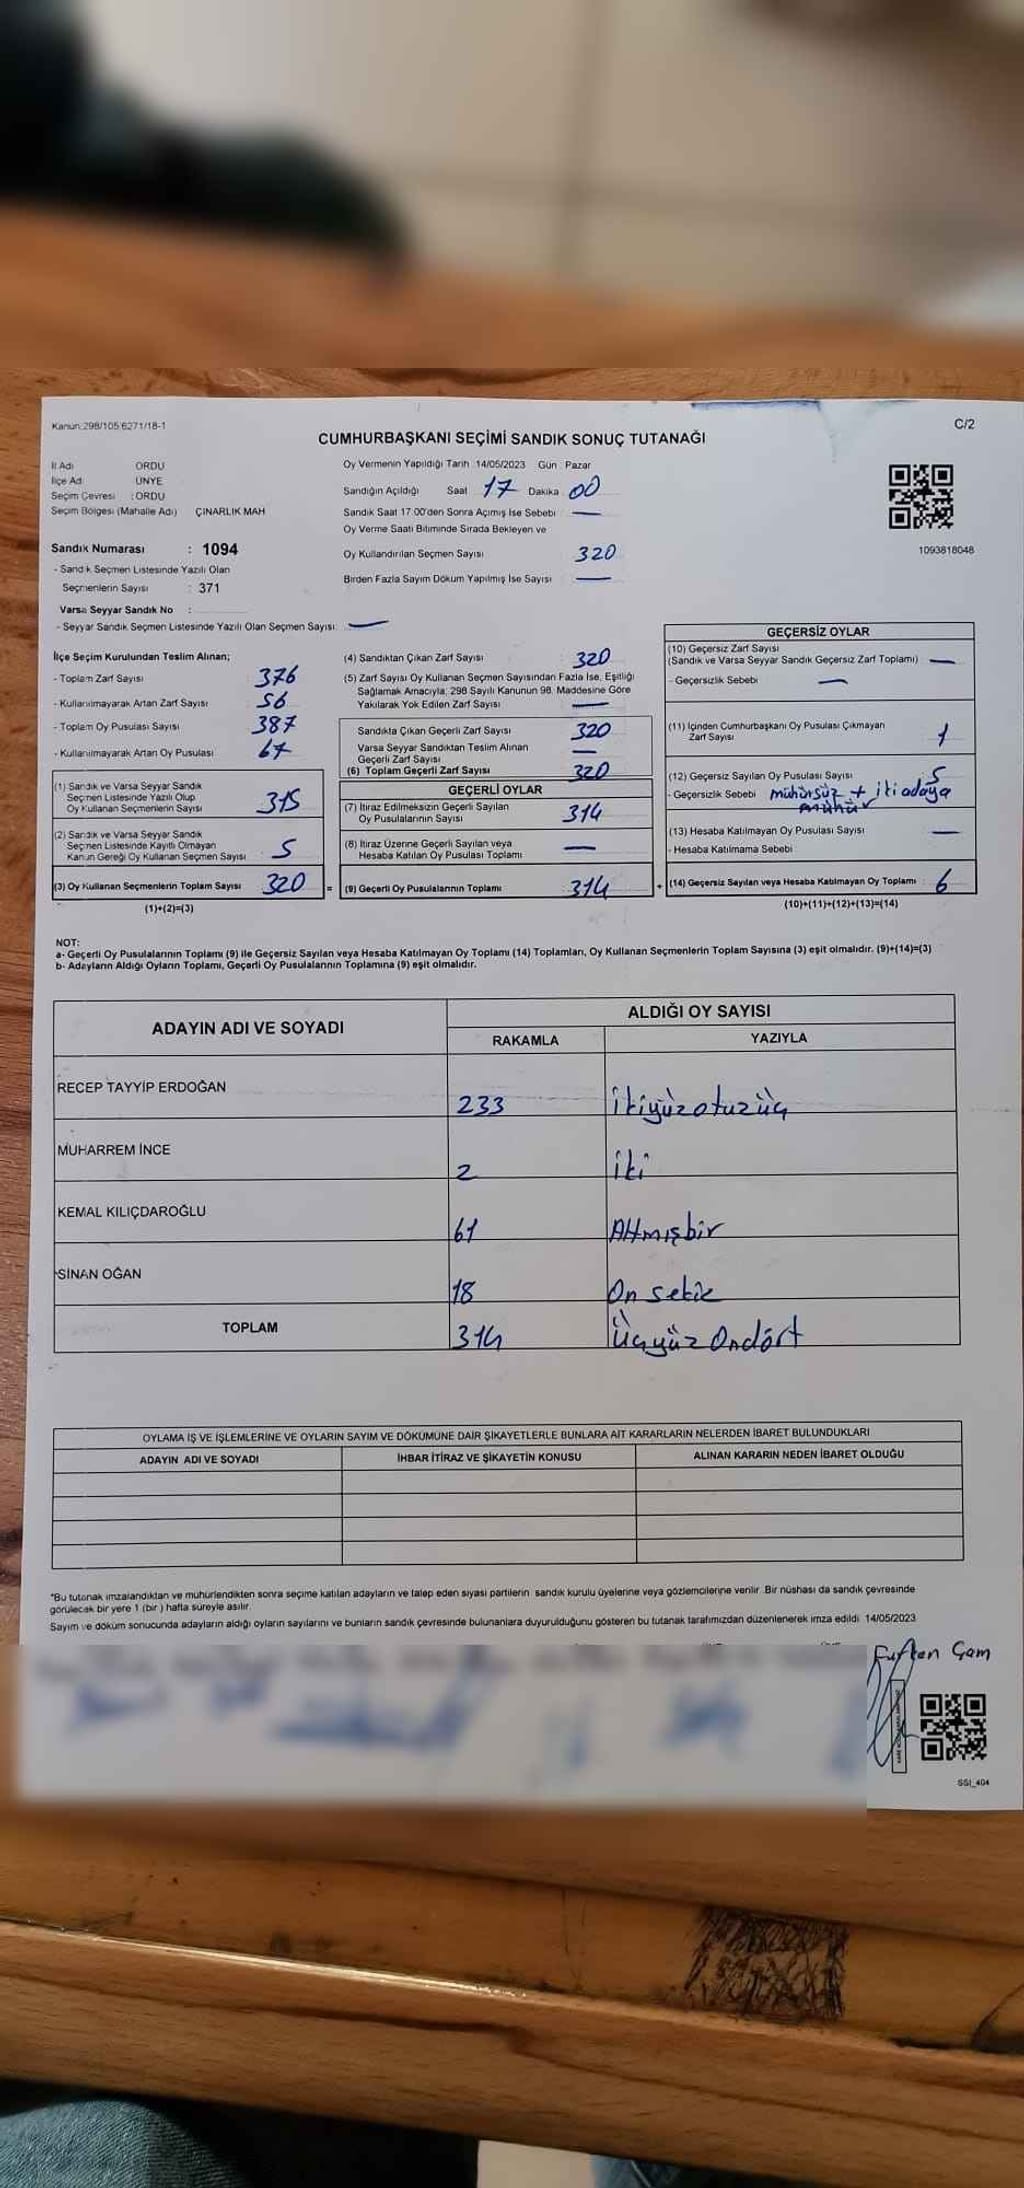 Kanun:298/105 6271/18-1
C/2
CUMHURBAŞKANI SEÇİMİ SANDIK SONUÇ TUTANAĞI
İl Adı ORDU
İlçe Adı ÜNYE
Seçim Çevresi : ORDU
Seçim Bölgesi (Mahalle Adı) ÇINARLIK MAH
Oy Vermenin Yapıldığı Tarih 14/05/2023 Gün Pazar
Sandığın Açıldığı Saat 17 Dakika 00
Sandık Saat 17.00'den Sonra Açımış İse Sebebi —
Oy Verme Saati Bitiminde Sırada Bekleyen ve
Oy Kullandırılan Seçmen Sayısı 320
Birden Fazla Sayım Döküm Yapılmış İse Sayısı —
1093818048
Sandık Numarası : 1094
- Sandık Seçmen Listesinde Yazılı Olan
Seçmenlerin Sayısı : 371
Varsa Seyyar Sandık No :
- Seyyar Sandık Seçmen Listesinde Yazılı Olan Seçmen Sayısı: —
İlçe Seçim Kurulundan Teslim Alınan;
- Toplam Zarf Sayısı 376
- Kullanılmayarak Artan Zarf Sayısı 56
- Toplam Oy Pusulası Sayısı 387
- Kullanılmayarak Artan Oy Pusulası 67
(1) Sandık ve Varsa Seyyar Sandık
Seçmen Listesinde Yazılı Olup
Oy Kullanan Seçmenlerin Sayısı 315
(2) Sandık ve Varsa Seyyar Sandık
Seçmen Listesinde Kayıtlı Olmayan
Kanun Gereği Oy Kullanan Seçmen Sayısı 5
(3) Oy Kullanan Seçmenlerin Toplam Sayısı 320 =
(1)+(2)=(3)
(4) Sandıktan Çıkan Zarf Sayısı 320
(5) Zarf Sayısı Oy Kullanan Seçmen Sayısından Fazla İse, Eşitliği
Sağlamak Amacıyla; 298 Sayılı Kanunun 98. Maddesine Göre
Yakılarak Yok Edilen Zarf Sayısı —
Sandıkta Çıkan Geçerli Zarf Sayısı 320
Varsa Seyyar Sandıktan Teslim Alınan
Geçerli Zarf Sayısı —
(6) Toplam Geçerli Zarf Sayısı 320
GEÇERLİ OYLAR
(7) İtiraz Edilmeksizin Geçerli Sayılan
Oy Pusulalarının Sayısı 314
(8) İtiraz Üzerine Geçerli Sayılan veya
Hesaba Katılan Oy Pusulası Toplamı —
(9) Geçerli Oy Pusulalarının Toplamı 314 +
GEÇERSİZ OYLAR
(10) Geçersiz Zarf Sayısı
(Sandık ve Varsa Seyyar Sandık Geçersiz Zarf Toplamı) —
- Geçersizlik Sebebi —
(11) İçinden Cumhurbaşkanı Oy Pusulası Çıkmayan
Zarf Sayısı 1
(12) Geçersiz Sayılan Oy Pusulası Sayısı 5
- Geçersizlik Sebebi mühürsüz + iki adaya
mühür
(13) Hesaba Katılmayan Oy Pusulası Sayısı —
- Hesaba Katılmama Sebebi
(14) Geçersiz Sayılan veya Hesaba Katılmayan Oy Toplamı 6
(10)+(11)+(12)+(13)=(14)
NOT:
a- Geçerli Oy Pusulalarının Toplamı (9) ile Geçersiz Sayılan veya Hesaba Katılmayan Oy Toplamı (14) Toplamları, Oy Kullanan Seçmenlerin Toplam Sayısına (3) eşit olmalıdır. (9)+(14)=(3)
b- Adayların Aldığı Oyların Toplamı, Geçerli Oy Pusulalarının Toplamına (9) eşit olmalıdır.
ADAYIN ADI VE SOYADI
ALDIĞI OY SAYISI
RAKAMLA YAZIYLA
RECEP TAYYİP ERDOĞAN 233 İkiyüzotuzüç
MUHARREM İNCE 2 iki
KEMAL KILIÇDAROĞLU 61 Altmışbir
SİNAN OĞAN 18 On sekiz
TOPLAM 314 Üçyüz Ondört
OYLAMA İŞ VE İŞLEMLERİNE VE OYLARIN SAYIM VE DÖKÜMÜNE DAİR ŞİKAYETLERLE BUNLARA AİT KARARLARIN NELERDEN İBARET BULUNDUKLARI
ADAYIN ADI VE SOYADI İHBAR İTİRAZ VE ŞİKAYETİN KONUSU ALINAN KARARIN NEDEN İBARET OLDUĞU
*Bu tutanak imzalandıktan ve mühürlendikten sonra seçime katılan adayların ve talep eden siyasi partilerin sandık kurulu üyelerine veya gözlemcilerine verilir. Bir nüshası da sandık çevresinde
görülecek bir yere 1 (bir) hafta süreyle asılır.
Sayım ve döküm sonucunda adayların aldığı oyların sayılarını ve bunların sandık çevresinde bulunanlara duyurulduğunu gösteren bu tutanak tarafımızdan düzenlenerek imza edildi 14/05/2023
Çam
SSI_404